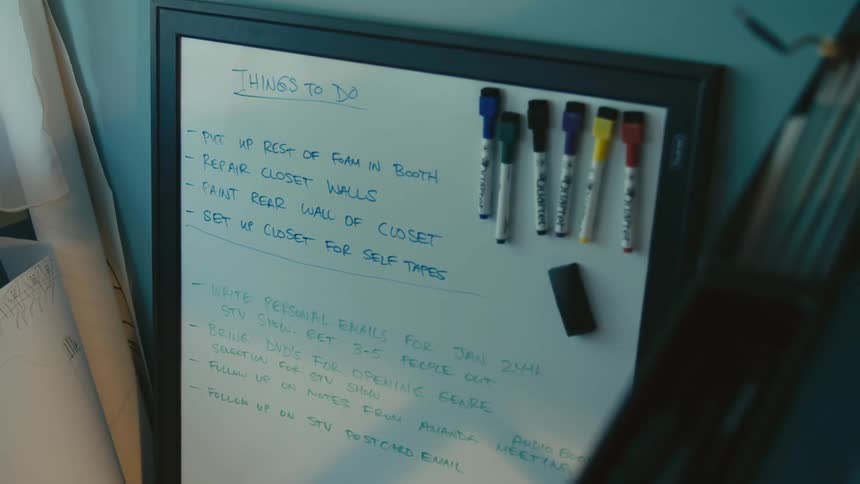 THINGS TO DO
- PUT UP REST OF FOAM IN BOOTH
- REPAIR CLOSET WALLS
- PAINT REAR WALL OF CLOSET
- SET UP CLOSET FOR SELF TAPES
- WRITE PERSONAL EMAILS FOR JAN 24TH
STV SHOW. GET 3-5 PEOPLE OUT
- BRING DVD'S FOR OPENING GENRE
SELECTION FOR STV SHOW
- FOLLOW UP ON NOTES FROM AMANDA MEETING
- FOLLOW UP ON STV POSTCARD EMAIL
AUDIO